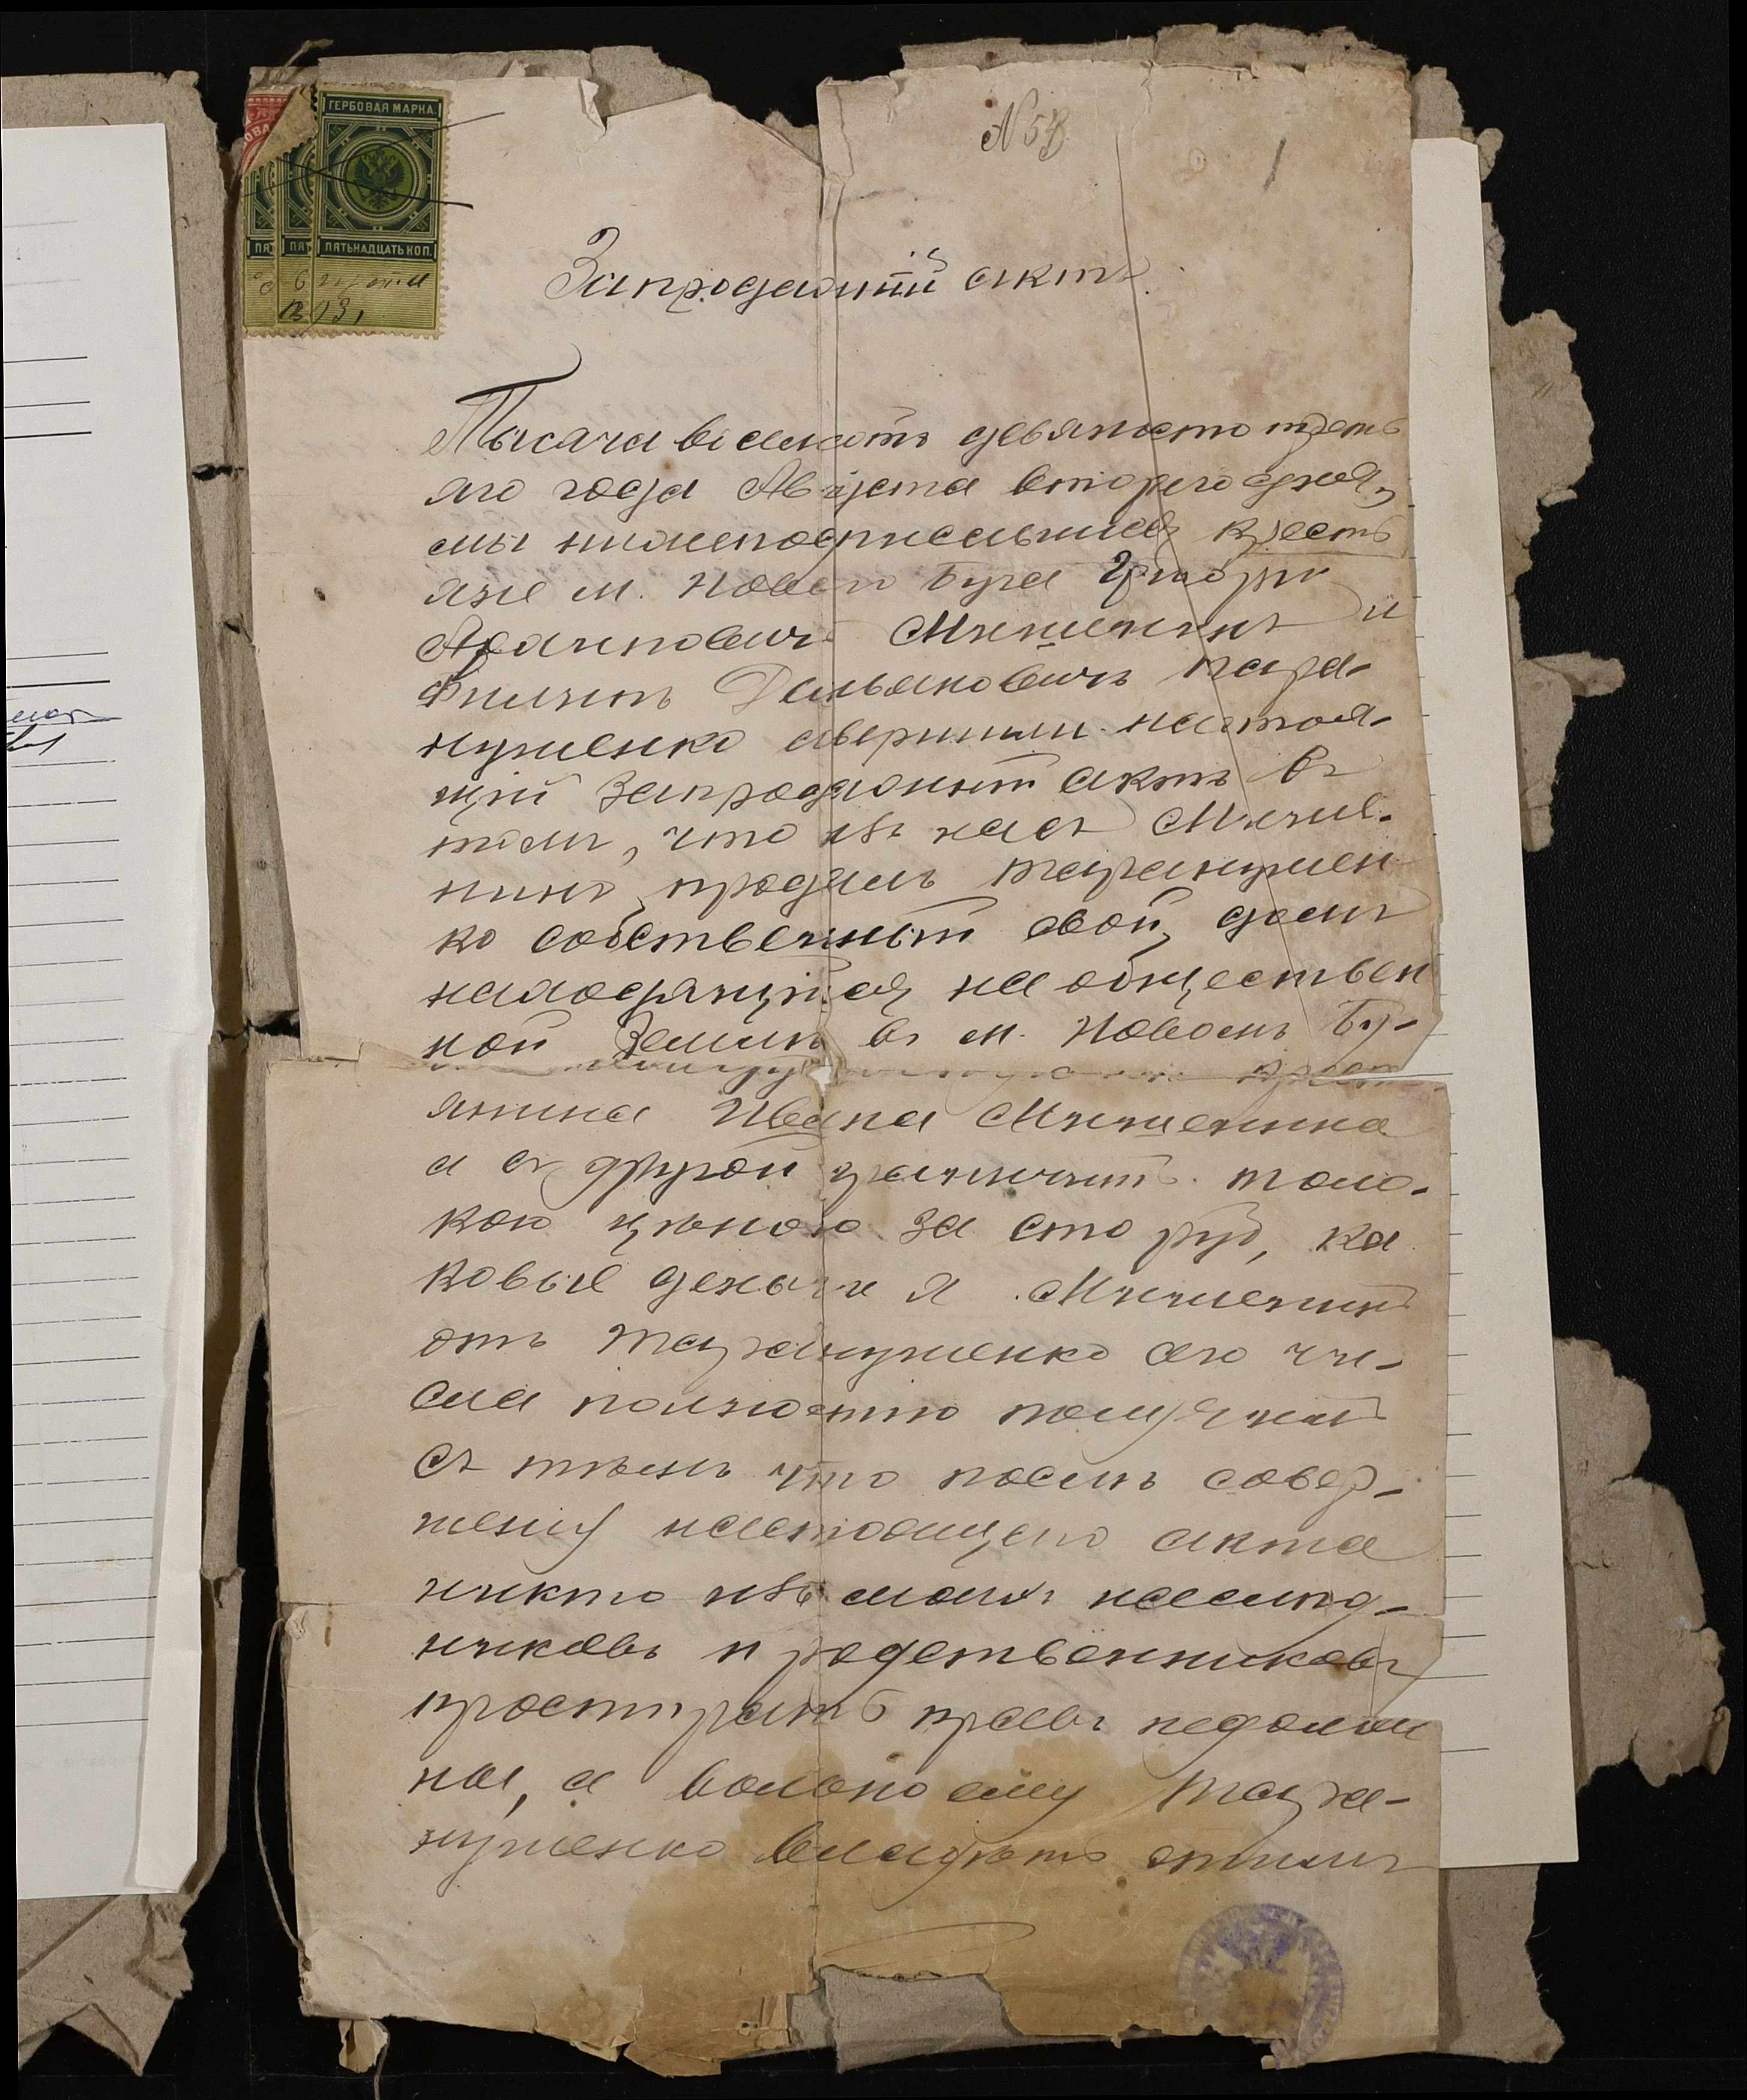 ГЕРБОВАЯ МАРКА
ПЯТЬНАДЦАТЬ КОП.
ПЯТ
ПЯТ
Августа
93
N 58
1
Запродажный актъ.
Тысяча восемсотъ девяносто треть
яго года Августа второго дня,
мы нижеподписавшиеся кресть
яне м. Новаго Буга Григорій
Мишенинъ и
Филипъ Демьяновичъ Тара-
нушенко совершили настоя-
щій запродажный актъ въ
томъ, что изъ насъ Мише-
нинъ продалъ Таранушен
ко собственный свой домъ
находящійся на обществен
ной земли въ м. Новомъ Бу-
крест
янина Ивана Мишенина
а съ другой граничитъ толо-
кою цѣною за сто руб, ка
ковые деньги я Мишенинъ
отъ Таранушенко сего чи-
сла полностью получилъ
съ тѣмъ что послѣ совер-
шенія настоящего акта
никто изъ моихъ наслѣд-
никовъ и родственниковъ
простирать правъ недолж
ны, а вольно ему Тара-
нушенко владѣть этимъ